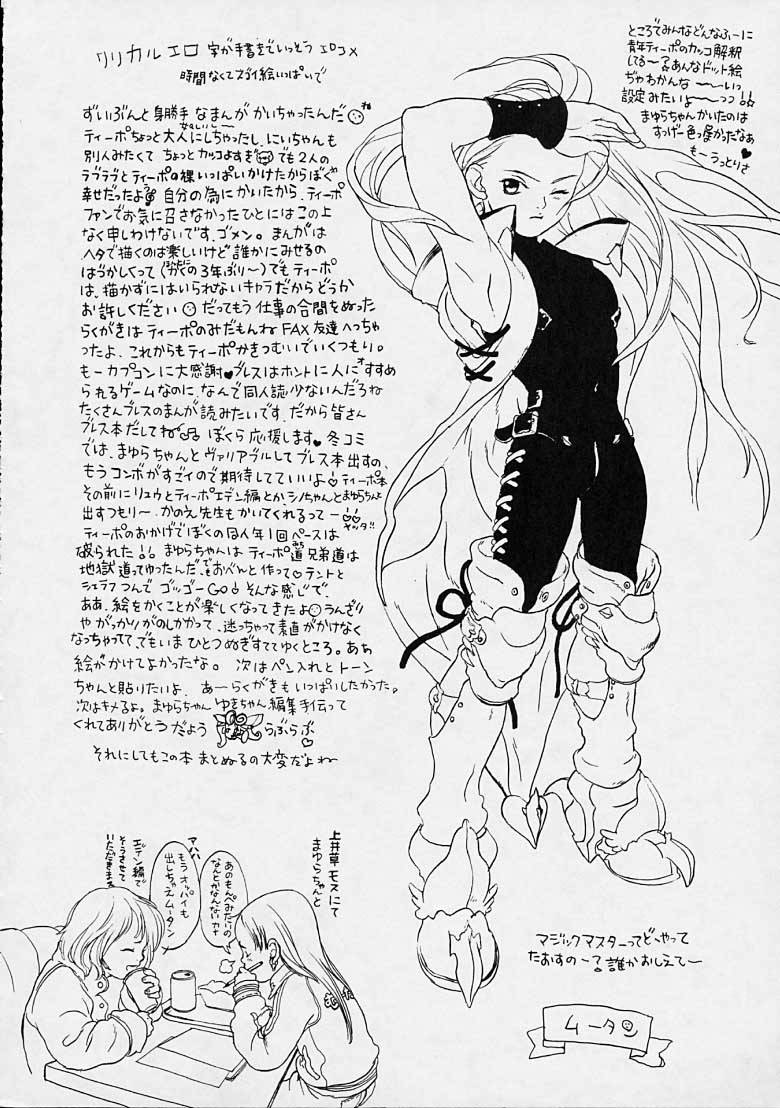 リリカルエロ 字が手書きでいっそう エロコメ
時間なくてズライ絵いっぱいで
ずいぶんと身勝手なまんがかいちゃったんだね
ティーポちょっと大人にしちゃったし、にいちゃんも
別人みたくて ちょっとカッコよすぎ でも2人の
ラブラブとティーポの裸いっぱいかけたからぼく
幸せだったよう 自分の為にかいたから、ティーポ
ファンでお気に召さなかったひとにはこの上
なく申しわけないです、ゴメン。まんがは
ヘタで描くのは楽しいけど誰かにみせるの
はづかしくって(の3年ぶり〜)でもティーポ
は、描かずにはいられないキャラだからどうか
お許しください だってもう仕事の合間をぬった
らくがきはティーポのみだもんね FAX友達へっちゃ
ったよ、これからもティーポかきつむいでいくつもり。
もーカプコンに大感謝♥ブレスはホントに人にすすめ
られるゲームなのに、なんで同人誌少ないんだろね
たくさんブレスのまんが読みたいです。だから皆さん
ブレス本だしてね ぼくら応援します♥冬コミ
では、まゆらちゃんとヴァリアブルしてブレス本出すの、
もうコンボがすごイので期待してていいよ ティーポ本
その前にリュウとティーポエデン編とかシノちゃんとまゆらちゃんと
出すつもり〜かのえ先生もかいてくれるってー ヤッタ!!
ティーポのおかげでぼくの同人年1回ペースは
破られた!! まゆらちゃんはティーポ道兄弟道は
地獄道ってゆったんだ、でもおべんと作って♡テントと
シュラフつんでゴッゴーGO! そんな感じで
ああ、絵をかくことが楽しくなってきたよ うんざり
やがっかりがのしかかって、迷っちゃって素直がかけなく
なっちゃってて、でもいまひとつぬぎすててゆくところ。あぁ
絵がかけてよかったな。 次はペン入れとトーン
ちゃんと貼りたいよ、あーらくがきもいっぱいしたかった。
次はキメるよ。まゆらちゃん ゆきちゃん編集手伝って
くれてありがとうだよう らぶらぶ♡
それにしてもこの本まとめるの大変だよね
ところでみんなどんなふーに
青年ティーポのカッコ解釈
してる〜?あんなドット絵
ぢゃわかんな〜〜いっ
設定みたいよ〜〜っっ!!
まゆらちゃんかいたのは
すっげー色っぽかったなぁ
もーうっとりさ♥
上井草モスにて
まゆらちゃんと
あのもんぺみたいの
なんとかなんないかナ
アハハ
もうオッパイも
出しちゃえムータン
エデン編で
そうさせて
いただきます
マジックマスターってどーやって
たおすのー?誰かおしえてー
ムータン